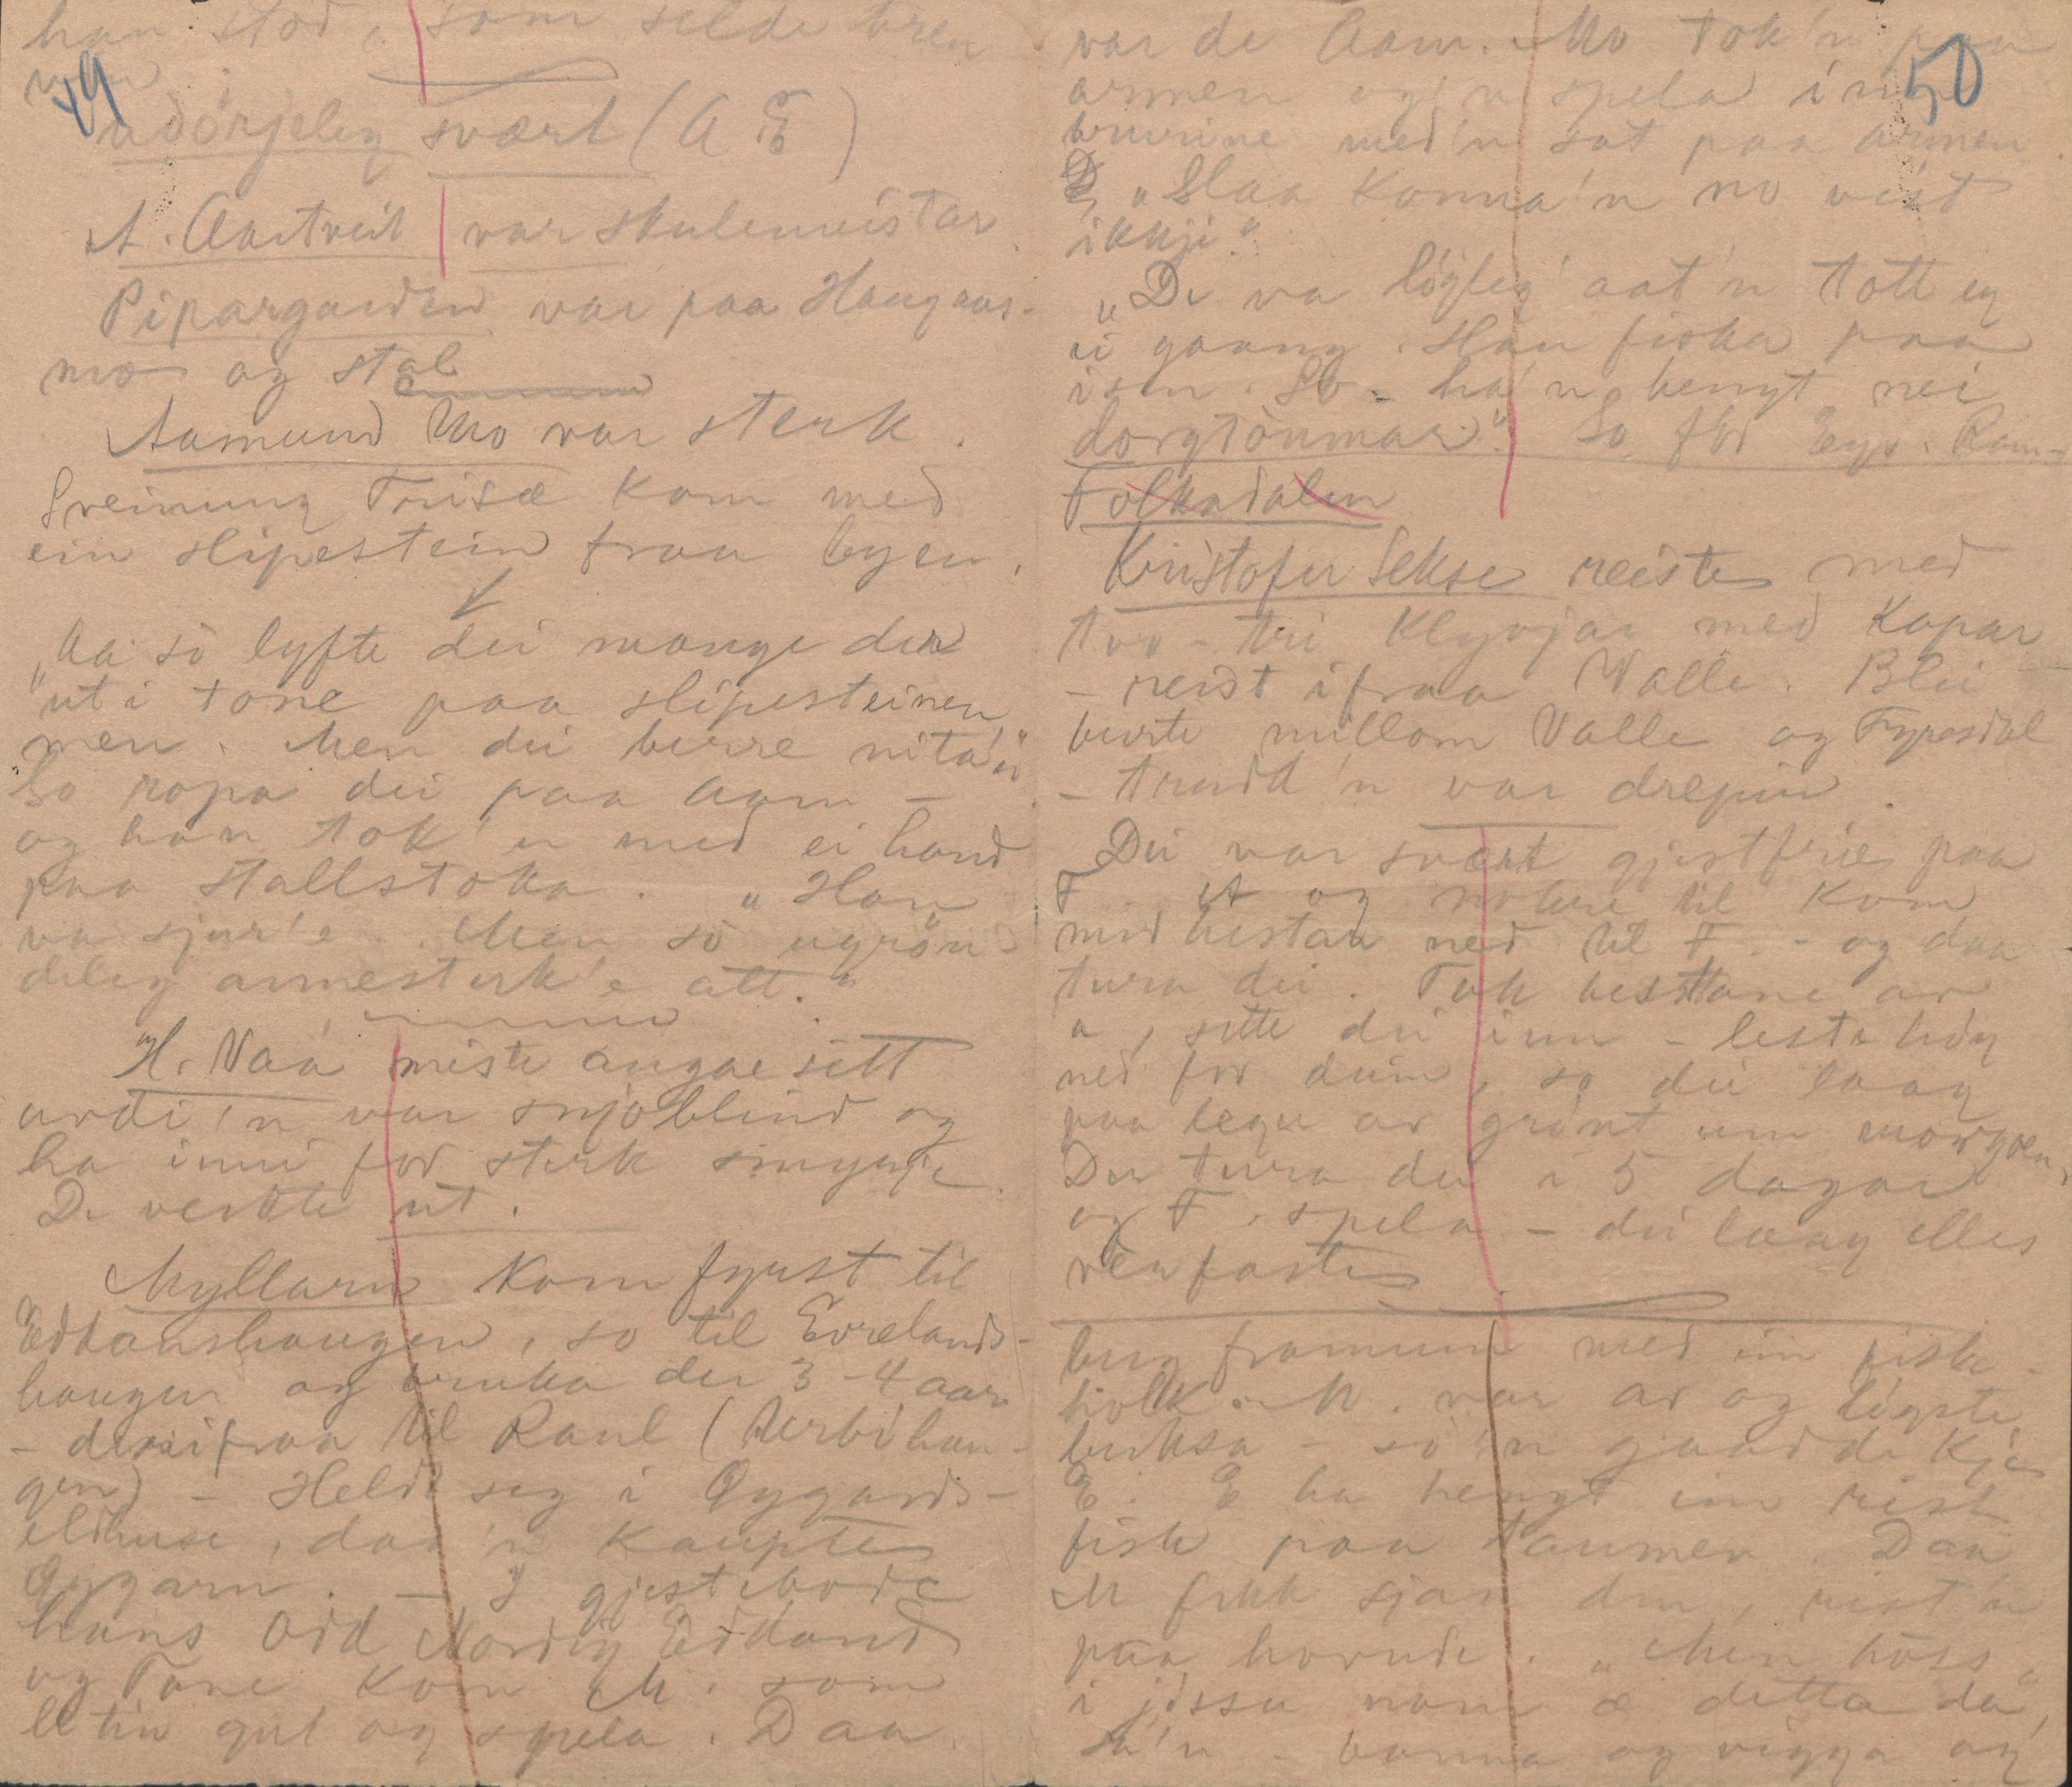 49
han stod, som selde bren
vin.
udörjeleg svært (A E)
A. Aartveit var skulemeistar.
Pipargarden var paa Haugans-
mo og stal
Aamund Mo var sterk.
Sveinung Trisæ kom med
ein slipestein fraa byen.
"Aa so lyfte dei mange der
ut i tone paa slipesteinen
men. Men dei berre vita'n"
So ropa dei paa Aam —
og han tok'n med ei hand
paa stallstoka. "Han
va sjur'e. Men so ugrön-
deleg armesterk'e att."
H. Vaa miste augnesitt
ardi'n var snjoblind og
ha inni for sterk smyrje.
De verkte ut.
Myllarn kom fyrst til
Eddanshaugen, so til Evrelands-
haugen og bruka der 3-4 aar
- dersifraa til Raul (Berbihau-
gen) - Heldt seg i Øygards-
eldhuse, daa'n kaupte
Øygarn. - I gjestebode
hans Odd Nordig Eddand
og Tone kom M. som
liten gut og spela. Daa
50
var de Aam. Mo tok'n paa
armen og'n spela inn
bruvine med'n sat paa armen.
"Slaa konna'n no vist
ikkji."
"De va løgleg aat'n tott eg
ei gaang. Han fiska paa
isen. So ha'n hengt nei
dorgtönmar". So for Eyv. Ram-
Folkadalen
Kristofer Sekse reiste med
tvo-tri klyvjar med kopar
- reist ifraa Valle. Blei
burte millom Valle og Fyresdal
- trudd'n var drepin.
Dei var svært gjestfrie paa
F. A og nokre til kom
med hestan ned til F. - og daa
tura dei. Tok hestane av
a, sette dei inn - lesta høy
ned for deim, so dei laag
paa legu av grint um morgoen.
Der tura dei i 5 dagar
og F. spela - dei laag elles
reifaste
burg framum med ein fiske-
holk. M. var av og løyste
buksa - so'n gaadde kje
E. E ha hengt ein rist
fisk paa taumen. Daa
M fekk sjaa den, rist'n
paa hovude. "Men hoss
i jossu namn æ detta da",
sa'n - banna og vigga og